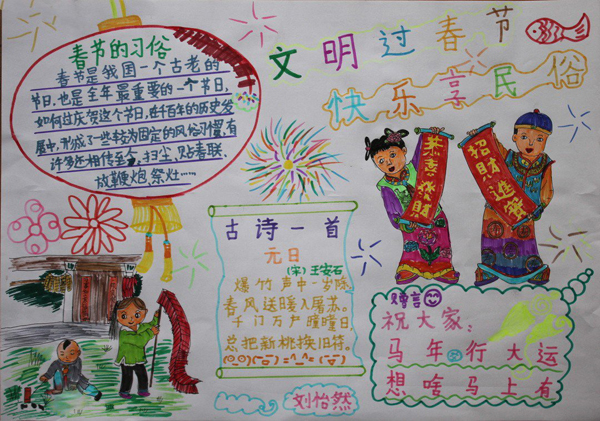 文明过春节
快乐享民俗
春节的习俗
春节是我国一个古老的
节日,也是全年最重要的一个节日,
如何过庆贺这个节日,在千百年的历史发
展中,形成了一些较为固定的风俗习惯,有
许多还相传至今,扫尘,贴春联,
放鞭炮,祭灶……
恭喜發财
招財進寶
古诗一首
元日
(宋)王安石
爆竹声中一岁除,
春风送暖入屠苏。
千门万户曈曈日,
总把新桃换旧符。
赠言
祝大家:
马年行大运
想啥马上有
刘怡然